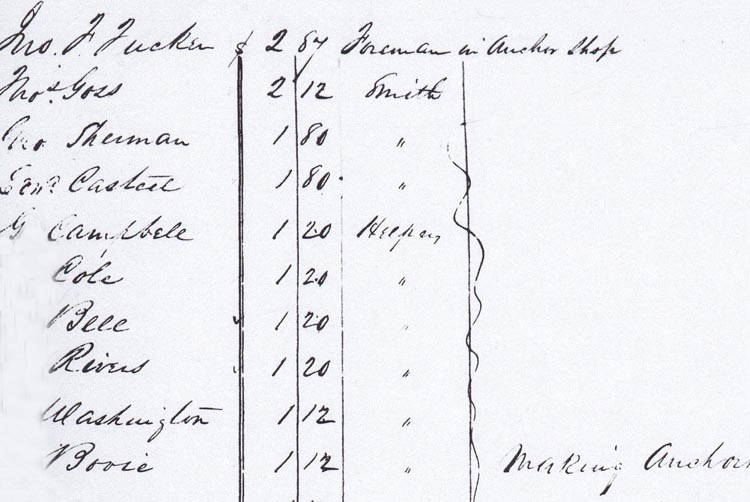 Jno. F Tucker $ 2 87 Foreman in Anchor Shop
Thos. Goss 2 12 Smith
Geo Sherman 1 80 "
Casteel 1 80 "
G Campbell 1 20 Helpers
Cole 1 20 "
Bell 1 20 "
Rivers 1 20 "
Washington 1 12 "
Boosie 1 12 " Making Anchors